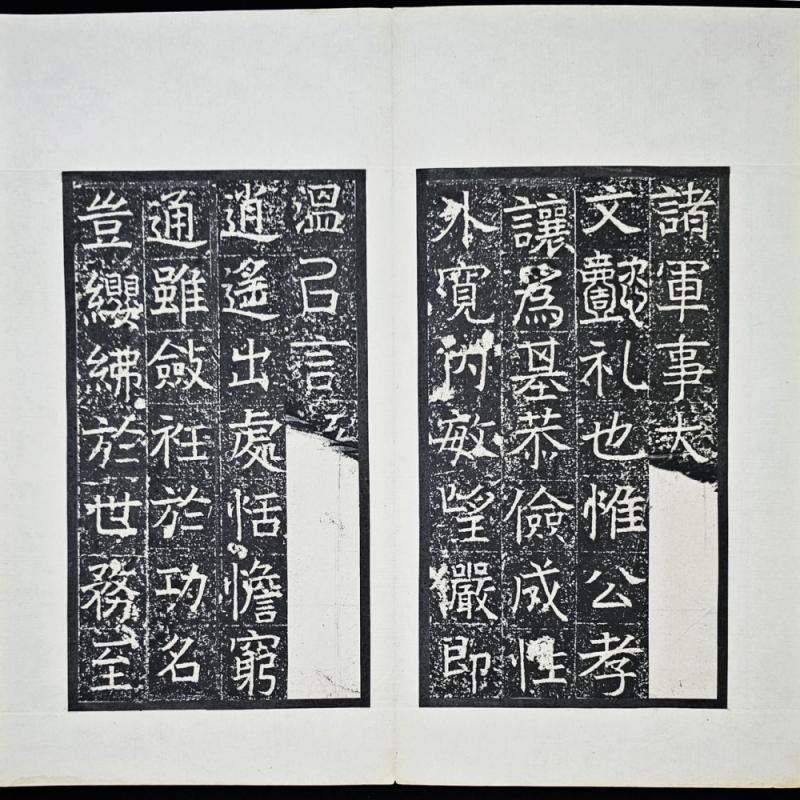 諸軍事大
文懿礼也惟公孝
讓為基恭儉成性
外寛内敏望嚴即
温㠯言
逍遙出處恬憺窮
通雖斂衽於功名
豈纓紼於世務至